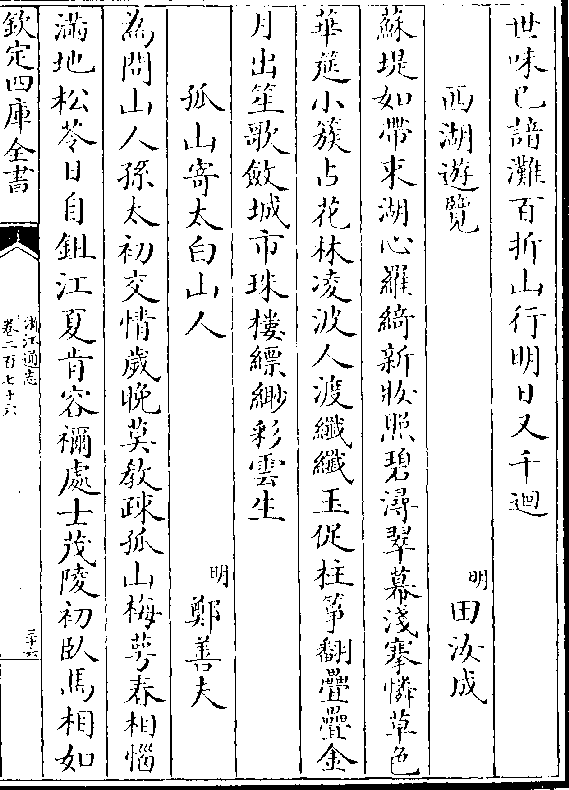 世味已諳灘百折山行明日又千迴
西湖遊覽
明
田汝成
蘇堤如帶束湖心羅綺新妝照碧潯翠幕淺搴憐草色
華筵小簇占花林凌波人渡纖纖玉促柱箏翻疊疊金
月出笙歌斂城市珠樓縹緲彩雲生
孤山寄太白山人
明
鄭善夫
為問山人孫太初交情歲晚莫教疎孤山梅萼春相惱
滿地松苓日自鉏江夏肯容禰處士茂陵初臥馬相如
欽定四庫全書
浙江通志
卷二百七十六
三十六